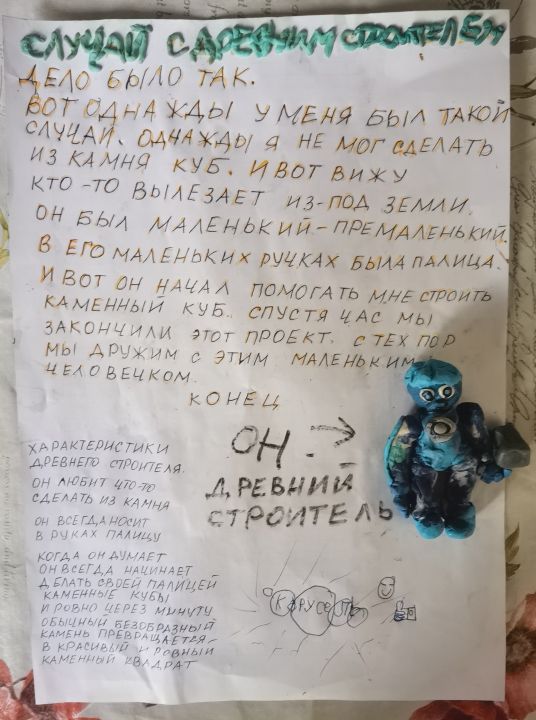 СЛУЧАЙ С ДРЕВНИМ СТРОИТЕЛЕМ
ДЕЛО БЫЛО ТАК.
ВОТ ОДНАЖДЫ У МЕНЯ БЫЛ ТАКОЙ
СЛУЧАЙ. ОДНАЖДЫ Я НЕ МОГ СДЕЛАТЬ
ИЗ КАМНЯ КУБ. И ВОТ ВИЖУ
КТО-ТО ВЫЛЕЗАЕТ ИЗ-ПОД ЗЕМЛИ.
ОН БЫЛ МАЛЕНЬКИЙ-ПРЕМАЛЕНЬКИЙ.
В ЕГО МАЛЕНЬКИХ РУЧКАХ БЫЛА ПАЛИЦА.
И ВОТ ОН НАЧАЛ ПОМОГАТЬ МНЕ СТРОИТЬ
КАМЕННЫЙ КУБ. СПУСТЯ ЧАС МЫ
ЗАКОНЧИЛИ ЭТОТ ПРОЕКТ. С ТЕХ ПОР
МЫ ДРУЖИМ С ЭТИМ МАЛЕНЬКИМ
ЧЕЛОВЕЧКОМ.
КОНЕЦ
ХАРАКТЕРИСТИКИ
ДРЕВНЕГО СТРОИТЕЛЯ.
ОН ЛЮБИТ ЧТО-ТО
СДЕЛАТЬ ИЗ КАМНЯ
ОН ВСЕГДА НОСИТ
В РУКАХ ПАЛИЦУ
КОГДА ОН ДУМАЕТ
ОН ВСЕГДА НАЧИНАЕТ
ДЕЛАТЬ СВОЕЙ ПАЛИЦЕЙ
КАМЕННЫЕ КУБЫ
И РОВНО ЧЕРЕЗ МИНУТУ
ОБЫЧНЫЙ БЕЗОБРАЗНЫЙ
КАМЕНЬ ПРЕВРАЩАЕТСЯ
В КРАСИВЫЙ И РОВНЫЙ
КАМЕННЫЙ КВАДРАТ
ОН. →
ДРЕВНИЙ
СТРОИТЕЛЬ
КАРУСЕЛЬ